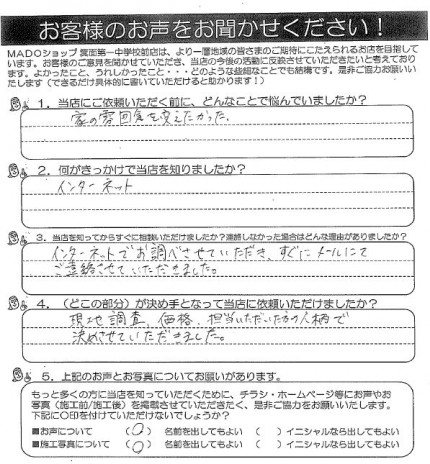 お客様のお声をお聞かせください!
MADOショップ 箕面第一中学校前店は、より一層地域の皆さまのご期待にこたえられるお店を目指して
います。お客様のご意見を聞かせていただき、当店の今後の活動に反映させていただきたいと考えており
ます。よかったこと、うれしかったこと・・・どのような些細なことでも結構です。是非ご協力お願いい
たします(できるだけ具体的に書いていただけると助かります!)
1.当店にご依頼いただく前に、どんなことで悩んでいましたか?
家の雰囲気を変えたかった。
2.何がきっかけで当店を知りましたか?
インターネット
3.当店を知ってからすぐに相談いただけましたか?連絡しなかった場合はどんな理由がありましたか?
インターネットでお調べさせていただき、すぐにメールにて
ご連絡させていただきました。
4.(どこの部分)が決め手となって当店に依頼いただけましたか?
現地調査、価格、担当いただいた方の人柄で
決めさせていただきました。
5.上記のお声とお写真についてお願いがあります。
もっと多くの方に当店を知っていただくために、チラシ・ホームページ等にお声やお
写真(施工前/施工後)を掲載させていただきたく、是非ご協力をお願いいたします。下
記に○印を付けていただけないでしょうか?
■お声について (○) 名前を出してもよい ( ) イニシャルなら出してもよい
■施工写真について (○) 名前を出してもよい ( ) イニシャルなら出してもよい